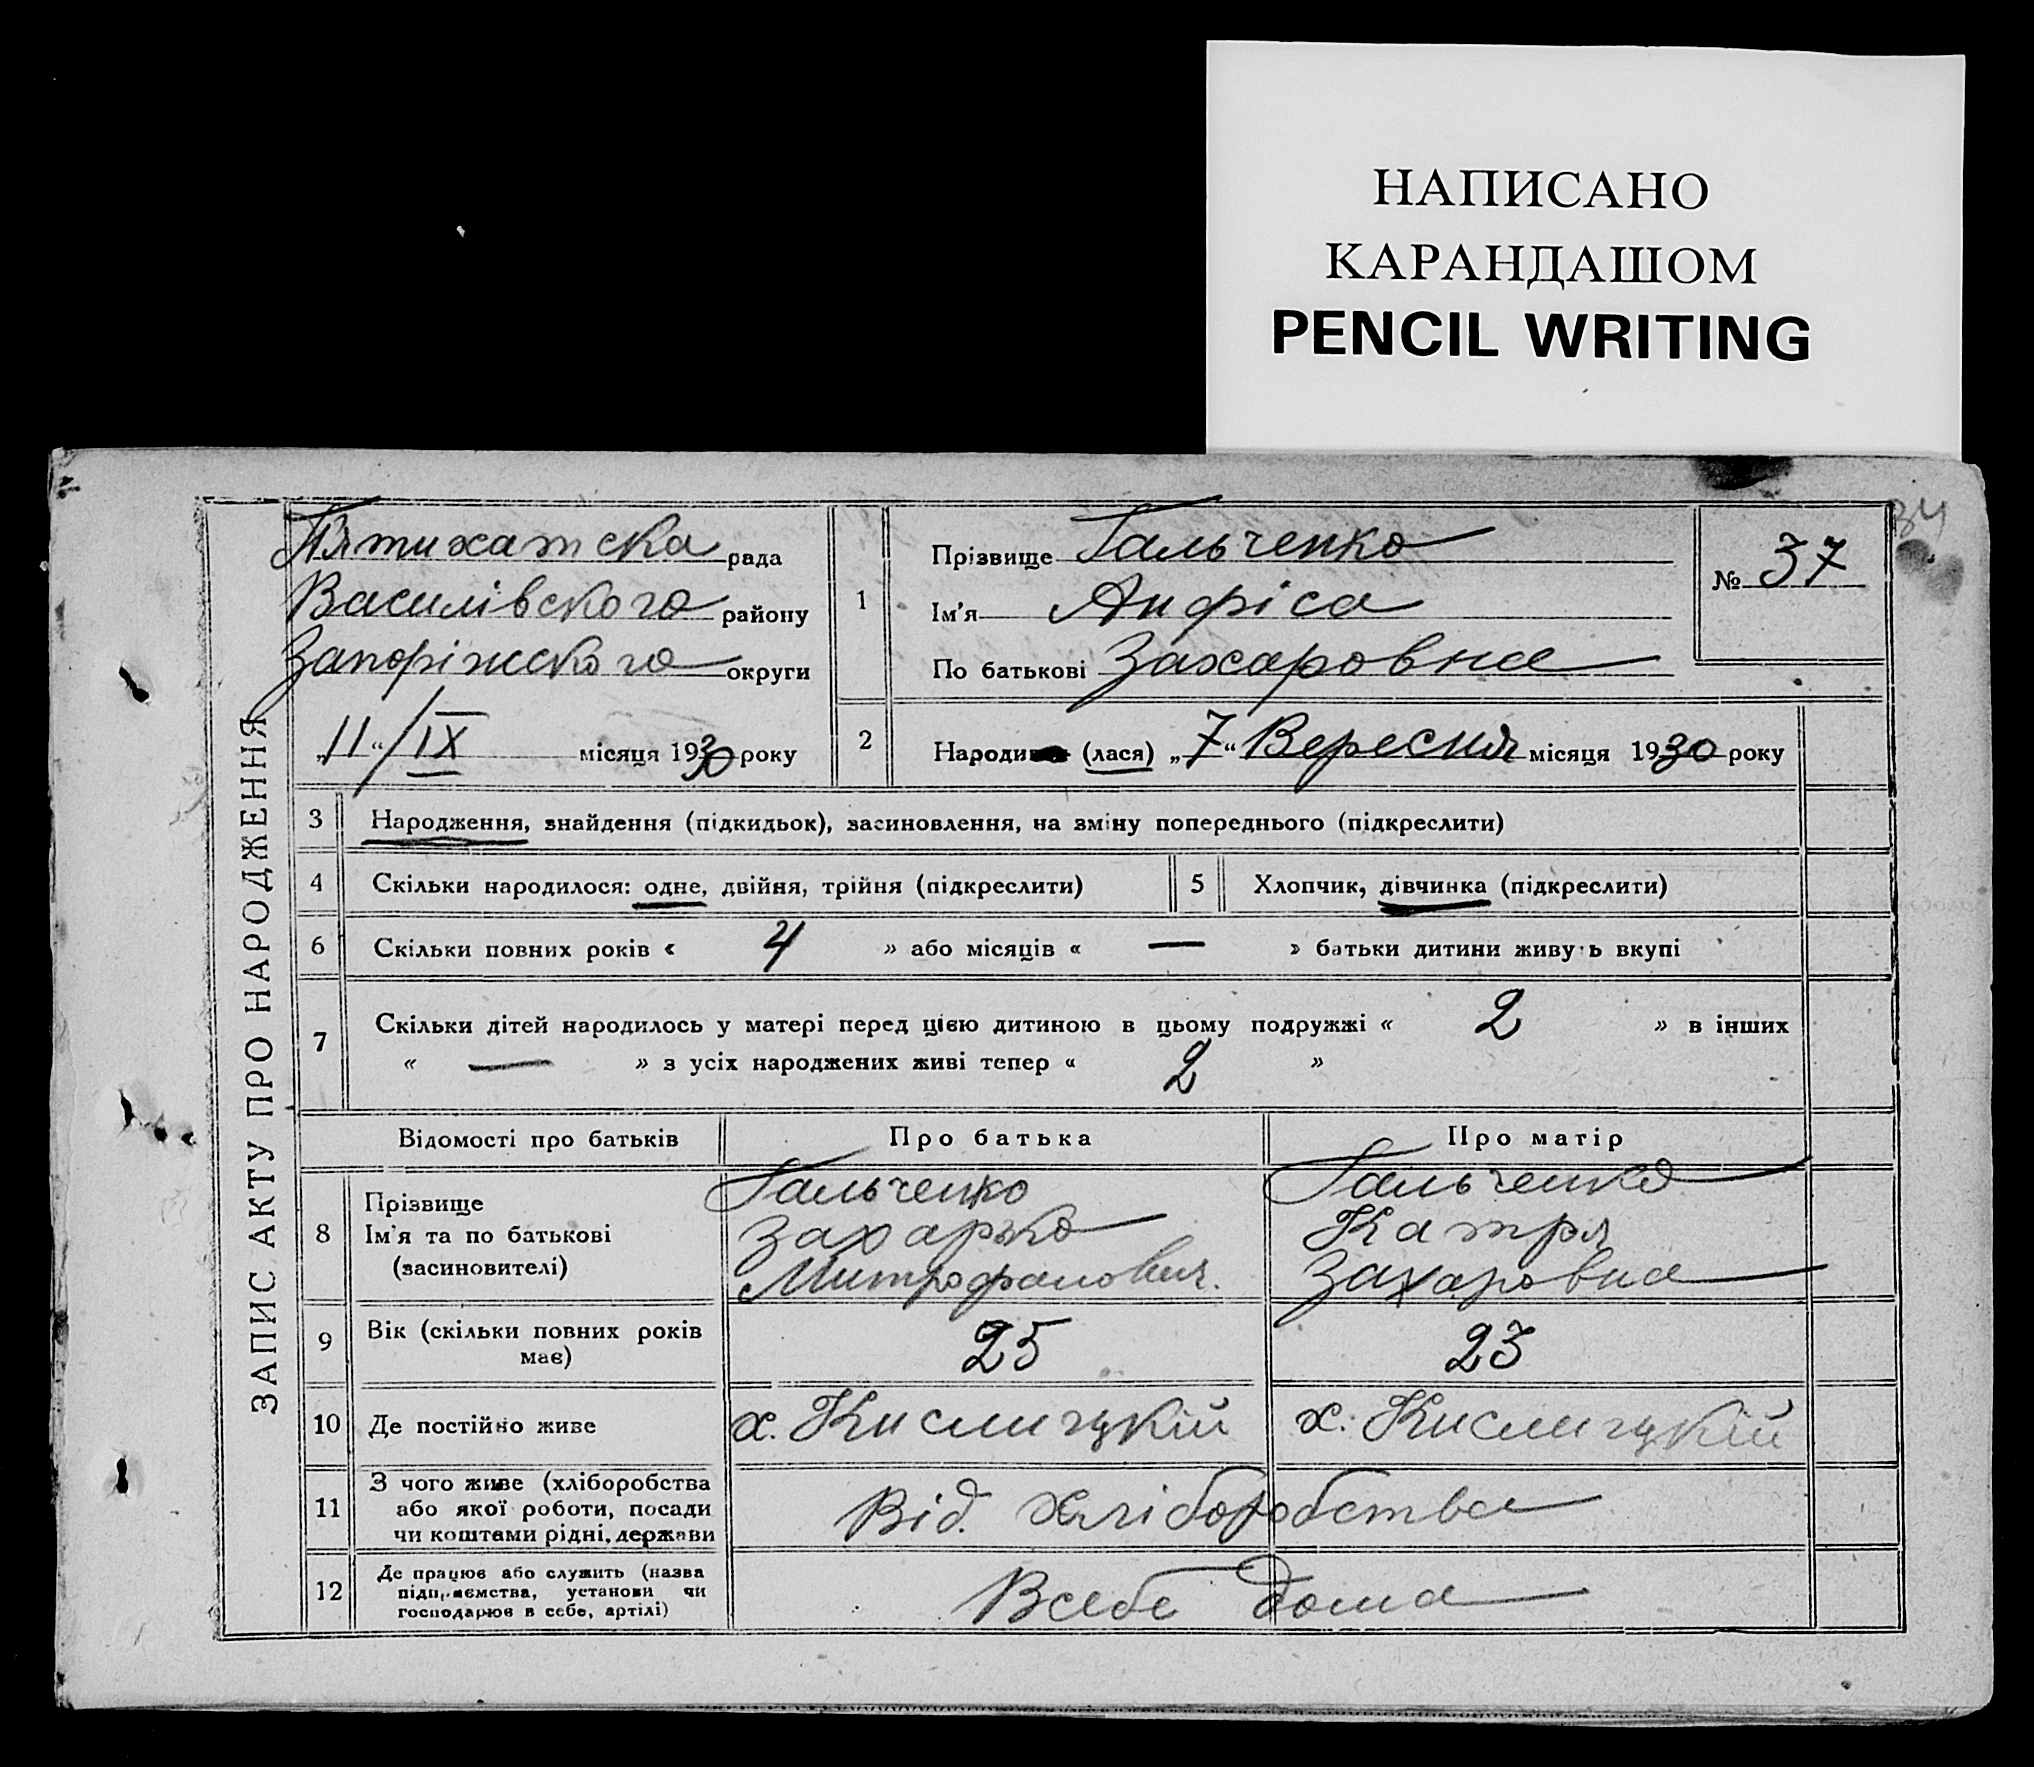 НАПИСАНО
КАРАНДАШОМ
PENCIL WRITING
34
ЗАПИС АКТУ ПРО НАРОДЖЕННЯ
Пятихатска рада
Василівського району
Запоріжского округи
„11“/IX місяця 1930 року
1 Прізвище Гальченко
Ім'я Анфіса
По батькові Захаровна
№ 37
2 Народився (лася) „7“ Вересня місяця 1930 року
3 Народження, знайдення (підкидьок), засиновлення, на зміну попереднього (підкреслити)
4 Скільки народилося: одне, двійня, трійня (підкреслити)
5 Хлопчик, дівчинка (підкреслити)
6 Скільки повних років « 4 » або місяців « — » батьки дитини живуть вкупі
7 Скільки дітей народилось у матері перед цією дитиною в цьому подружжі « 2 » в інших
« — » з усіх народжених живі тепер « 2 »
Відомості про батьків Про батька Про матір
8 Прізвище Гальченко Гальченко
Ім'я та по батькові Захарко Катря
(засиновителі) Митрофанович. Захаровна
9 Вік (скільки повних років має) 25 23
10 Де постійно живе х. Кислицкій х. Кислицкій
11 З чого живе (хліборобства
або якої роботи, посади
чи коштами рідні, держави
Від. хліборобства
12 Де працює або служить (назва
підприємства, установи чи
господарює в себе, артілі)
Всебе дома